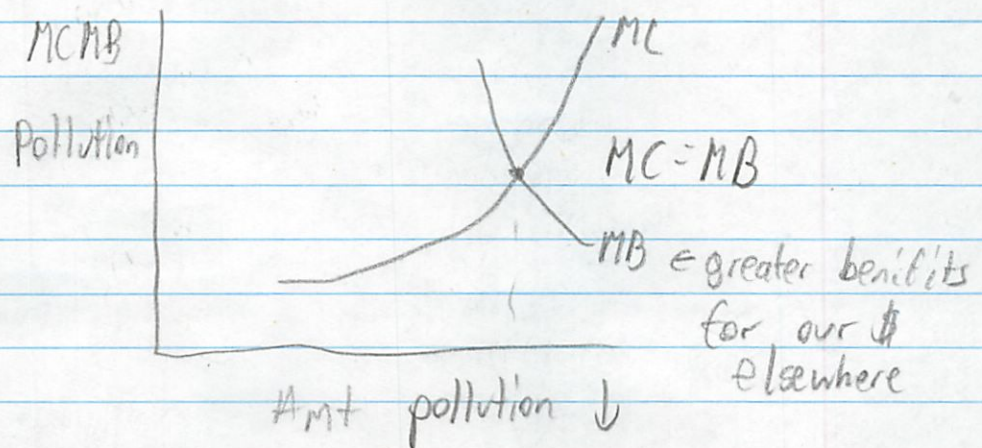 MCMB
Pollution
MC
MC=MB
MB ← greater benifits
for our $
elsewhere
Amt pollution ↓